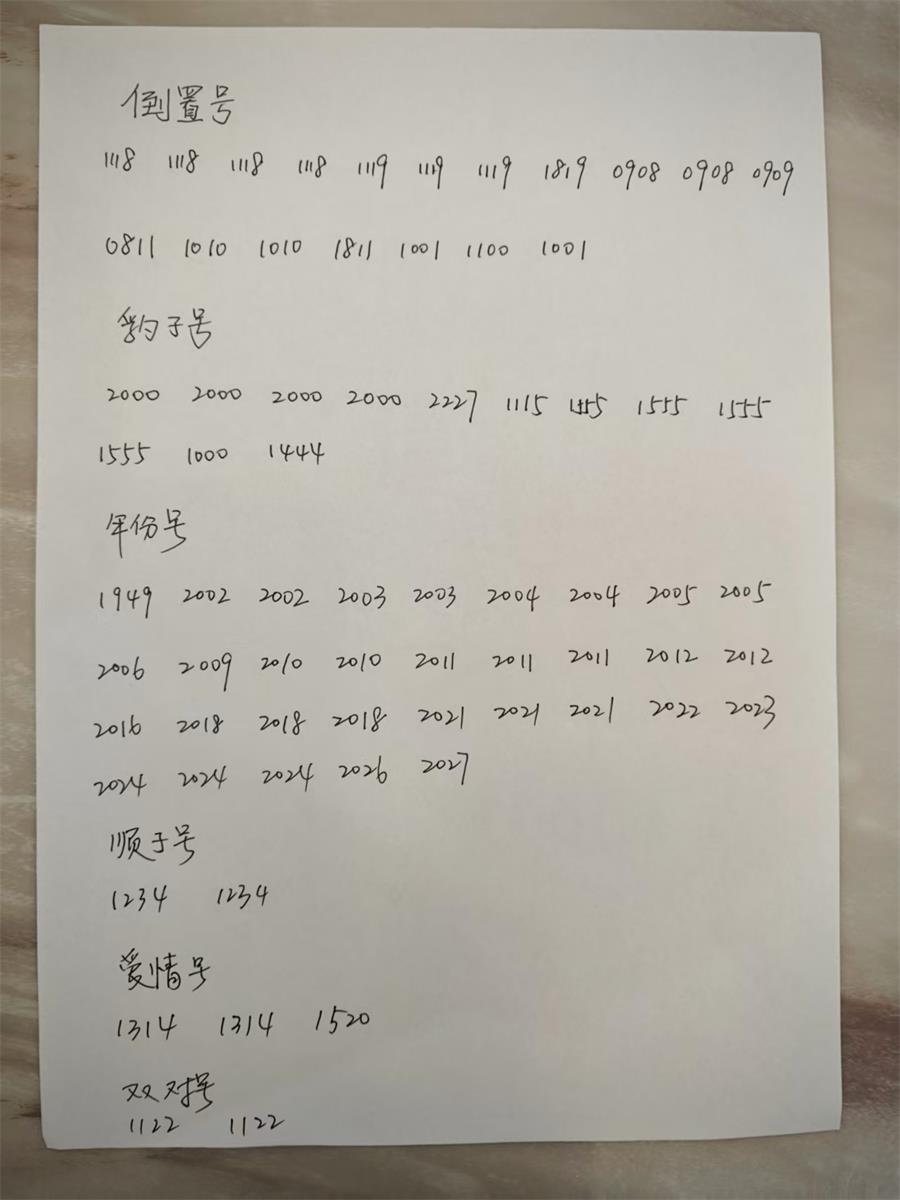 倒置号
1118 1118 1118 1118 1119 1119 1119 1819 0908 0908 0909
0811 1010 1010 1811 1001 1100 1001
豹子号
2000 2000 2000 2000 2227 1115 1555 1555
1555 1000 1444
年份号
1949 2002 2002 2003 2003 2004 2004 2005 2005
2006 2009 2010 2010 2011 2011 2011 2012 2012
2016 2018 2018 2018 2021 2021 2021 2022 2023
2024 2024 2024 2026 2027
顺子号
1234 1234
爱情号
1314 1314 1520
双对号
1122 1122